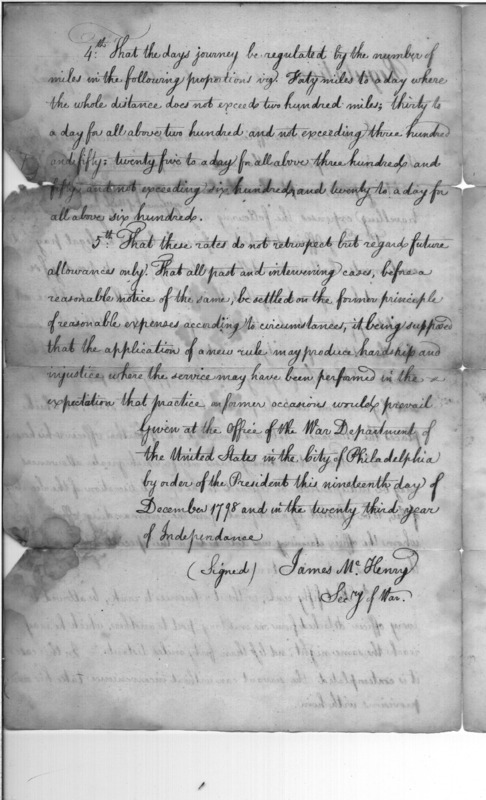 4th. That the days journey be regulated by the number of
miles in the following proportions viz. Forty miles to a day where
the whole distance does not exceed two hundred miles; thirty to
a day for all above two hundred and not exceeding three hundred
and fifty: twenty five to a day for all above three hundred and
fifty and not exceeding six hundred, and twenty to a day for
all above six hundred.
5th. That these rates do not retrospect but regard future
allowances only. That all past and intervening cases, before a
reasonable notice of the same, be settled on the former principle
of reasonable expenses according to circumstances, it being supposed
that the application of a new rule may produce hardship and
injustice where the service may have been performed in the
expectation that practice on former occasions would prevail
Given at the Office of the War Department of
the United States in the City of Philadelphia
by order of the President this nineteenth day of
December 1798 and in the twenty third year
of Independance
(Signed) James Mc. Henry
Secry of War.